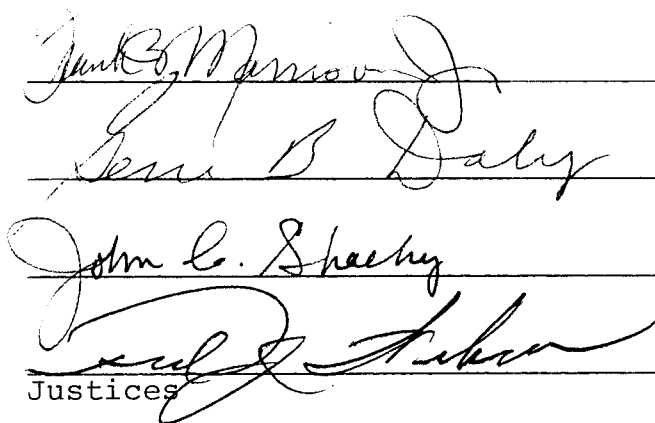 Frank B. Morrison Jr.
Gene B Daly
John C. Sheehy
Fred J. Weber
Justices